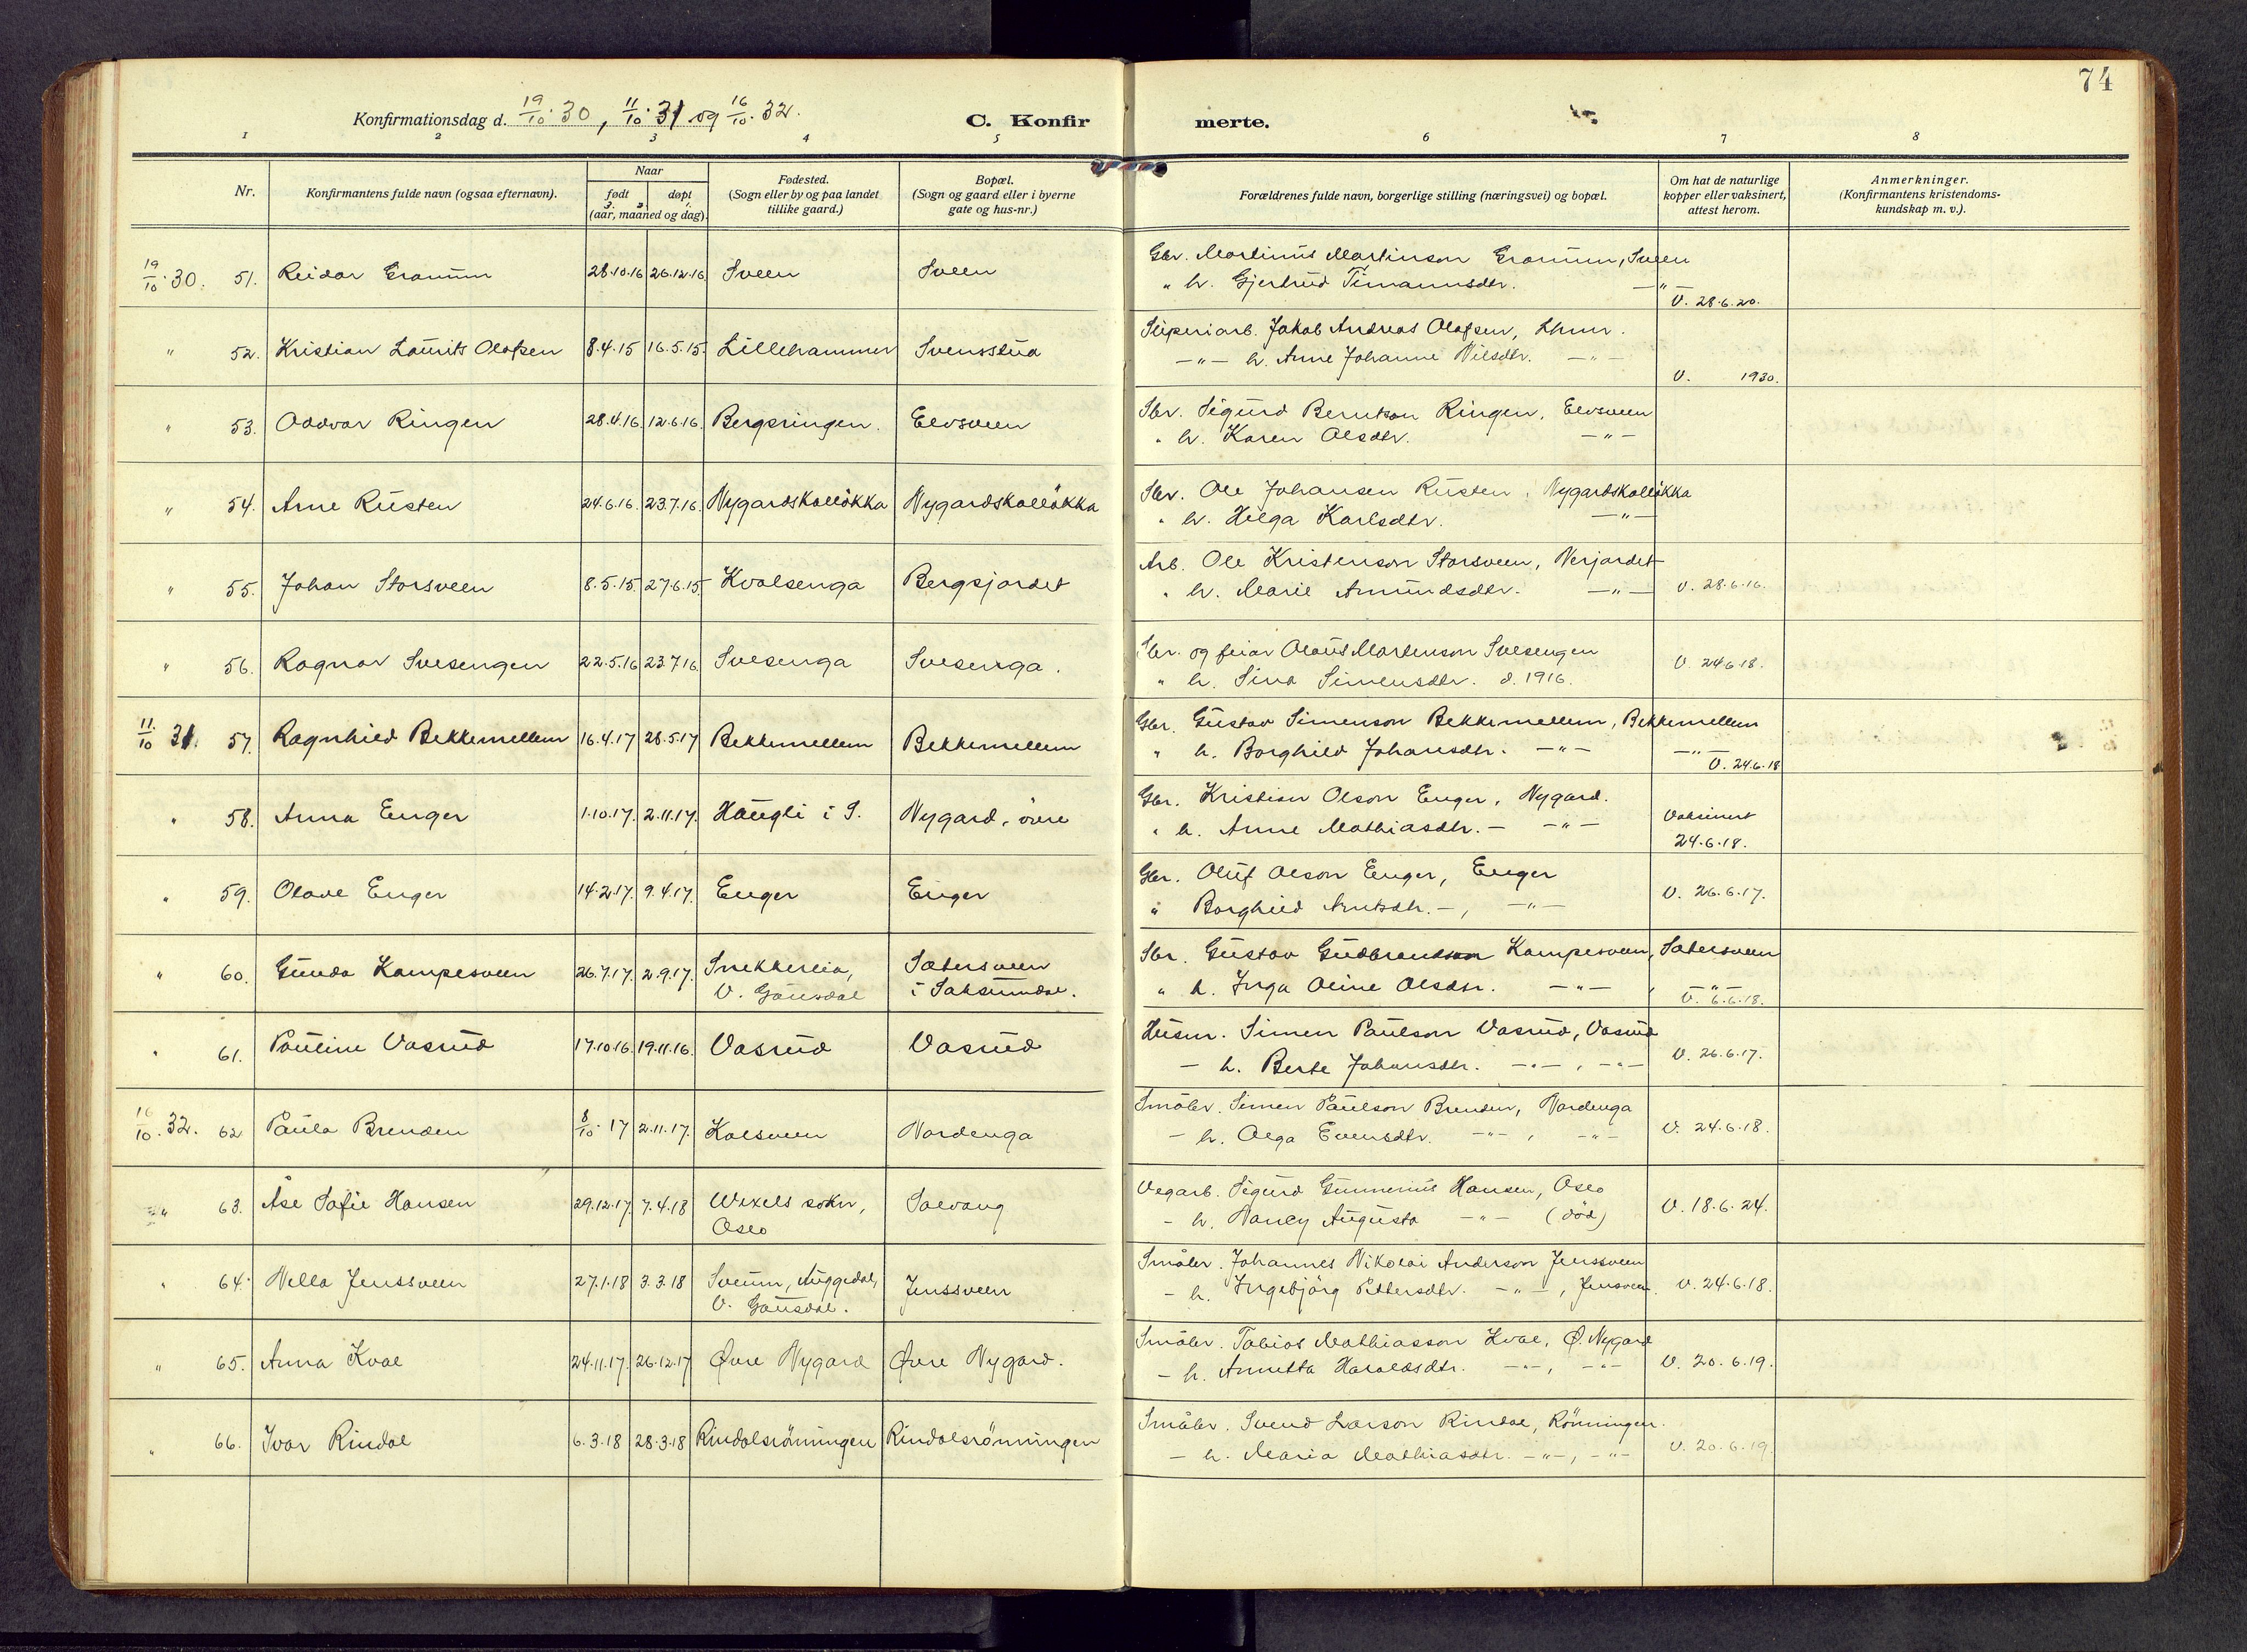 74
Konfirmationsdag d. 19/10·30, 11/10·31 og 16/10·32.
C. Konfirmerte.
1 2 3 4 5 6 7 8
Nr.
Konfirmantens fulde navn (ogsaa efternavn).
Naar
født
døpt
(aar, maaned og dag).
Fødested.
(Sogn eller by og paa landet
tillike gaard.)
Bopæl.
(Sogn og gaard eller i byerne
gate og hus-nr.)
Forældrenes fulde navn, borgerlige stilling (næringsvei) og bopæl.
Om hat de naturlige
kopper eller vaksinert,
attest herom.
Anmerkninger.
(Konfirmantens kristendoms-
kundskap m. v.).
19/10·30. 51. Reidar Granum 28.10.16 26.12.16 Sveen Sveen
Gbr. Martinus Martinson Granum, Sveen
" h. Gjertrud Timannsdtr. —"—
V. 28.6.20.
" 52. Kristian Laurits Olafsen 8.4.15 16.5.15. Lillehammer Svensstua
Sliperiarb. Jakob Andreas Olafsen, Lhmr.
—"— h. Anne Johanne Nilsdtr. —"—
V. 1930.
" 53. Oddvar Ringen 28.4.16. 12.6.16. Bergsringen. Elvsveen
Sbr. Sigurd Berntson Ringen, Elvsveen
" h. Karen Olsdtr. —"—
" 54. Arne Rusten 24.6.16. 23.7.16. Nygardskalløkka Nygardskalløkka
Sbr. Ole Johansen Rusten, Nygardskalløkka
" h. Helga Karlsdtr. —"—
" 55. Johan Storsveen 8.5.15. 27.6.15 Kvalsenga Bergsjordet
Arb. Ole Kristenson Storsveen, Nerjordet
" h. Marie Amundsdtr. —"—
V. 28.6.16.
" 56. Ragnar Svesengen 22.5.16 23.7.16 Svesenga Svesenga.
Sbr. og feiar Olaus Martenson Svesengen
" h. Sina Simensdtr. d. 1916.
V. 24.6.18.
11/10 31. 57. Ragnhild Bekkemellem 16.4.17 28.5.17 Bekkemellem Bekkemellem
Gbr. Gustav Simenson Bekkemellem, Bekkemellem
" h. Borghild Johansdtr. —"— —"—
V. 24.6.18
" 58. Anna Enger 1.10.17. 2.11.17. Haugli i S. Nygard, øvre
Gbr. Kristian Olson Enger, Nygard.
" h. Anne Mathiasdtr. — —"—
Vaksinert
24.6.18.
" 59. Olave Enger 14.2.17. 9.4.17. Enger Enger
Gbr. Oluf Olson Enger, Enger
" Borghild Arntsdtr. —, —"—
V. 26.6.17.
" 60. Gunda Kampesveen 26.7.17. 2.9.17. Snekkerlia,
V. Gausdal
Sætersveen
i Saksumdal.
Sbr. Gustav Gudbrandson Kampesveen, Sætersveen
" h. Inga Oline Olsdtr. —"— , —"—
V. 6.6.18.
" 61. Pauline Vasrud 17.10.16. 19.11.16. Vasrud Vasrud
Husm. Simen Paulson Vasrud, Vasrud
— h. Berte Johansdtr. —"—, —"—
V. 26.6.17.
16/10.32. 62 Paula Brenden 8/10 17 2.11.17. Kalsveen Nordenga
Småbr. Simen Paulson Brenden, Nordenga
— h. Olga Evensdtr. —"—, —"—
V. 24.6.18.
" 63. Åse Sofie Hansen 29.12.17 7.4.18 Wexels sokn,
Oslo
Solvang
Vegarb. Sigurd Gunnerius Hansen, Oslo
— h. Nancy Augusta —"— (död)
V. 18.6.24.
" 64. Nella Jenssveen 27.1.18 3.3.18 Sveum, Auggedal,
V. Gausdal.
Jenssveen
Småbr. Johannes Nikolai Anderson Jenssveen
— h. Ingebjörg Pettersdtr. —"—, Jenssveen.
V. 24.6.18.
" 65. Anna Kval 24.11.17. 26.12.17 Øvre Nygard Øvre Nygard.
Småbr. Tobias Mathiasson Kval, Ø. Nygard
— h. Annetta Haraldsdtr. —"—, —"—
V. 20.6.19.
" 66. Ivar Rindal 6.3.18 28.3.18 Rindalsrönningen Rindalsrönningen
Småbr. Svend Larson Rindal, Rönningen.
— h. Maria Mathiasdtr. —"—, —"—
V. 20.6.19.